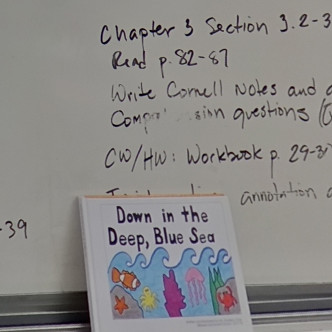 Chapter 3 Section 3.2-3
Read p. 82-87
Write Cornell Notes and
questions
CW/HW: Workbook p. 29-3
annotation
-39
Down in the
Deep, Blue Sea